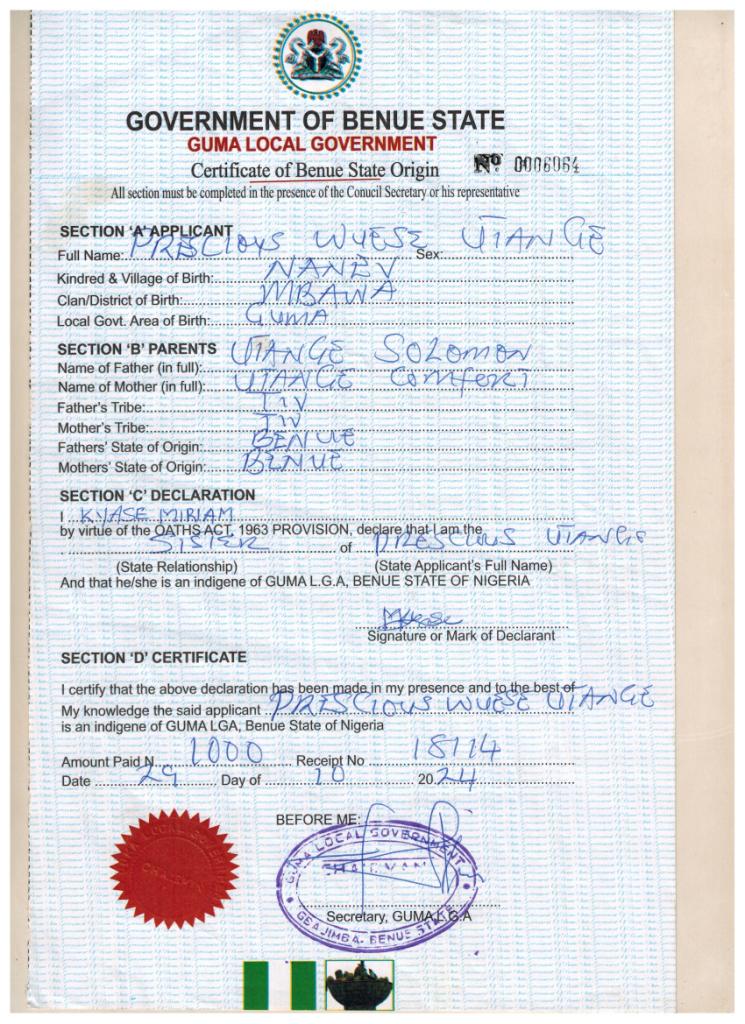 GOVERNMENT OF BENUE STATE
GUMA LOCAL GOVERNMENT
Certificate of Benue State Origin No. 0006064
All section must be completed in the presence of the Conucil Secretary or his representative
SECTION 'A' APPLICANT
Full Name: PRESCIOUS WUESE UTANGE Sex:
Kindred & Village of Birth: NANEV
Clan/District of Birth: MBAWA
Local Govt. Area of Birth: GUMA
SECTION 'B' PARENTS
Name of Father (in full): UTANGE SOLOMON
Name of Mother (in full): UTANGE COMFORT
Father's Tribe: TIV
Mother's Tribe: TIV
Fathers' State of Origin: BENUE
Mothers' State of Origin: BENUE
SECTION 'C' DECLARATION
I KYASE MIRIAM
by virtue of the OATHS ACT, 1963 PROVISION, declare that I am the
SISTER of PRESCIOUS UTANGE
(State Relationship) (State Applicant's Full Name)
And that he/she is an indigene of GUMA L.G.A, BENUE STATE OF NIGERIA
Signature or Mark of Declarant
SECTION 'D' CERTIFICATE
I certify that the above declaration has been made in my presence and to the best of
My knowledge the said applicant PRESCIOUS WUESE UTANGE
is an indigene of GUMA LGA, Benue State of Nigeria
Amount Paid N 1000 Receipt No 18114
Date 29 Day of 10 2024
BEFORE ME:
GUMA LOCAL GOVERNMENT
CHAIRMAN
Secretary, GUMA L.G.A
GBAJIMBA, BENUE STATE